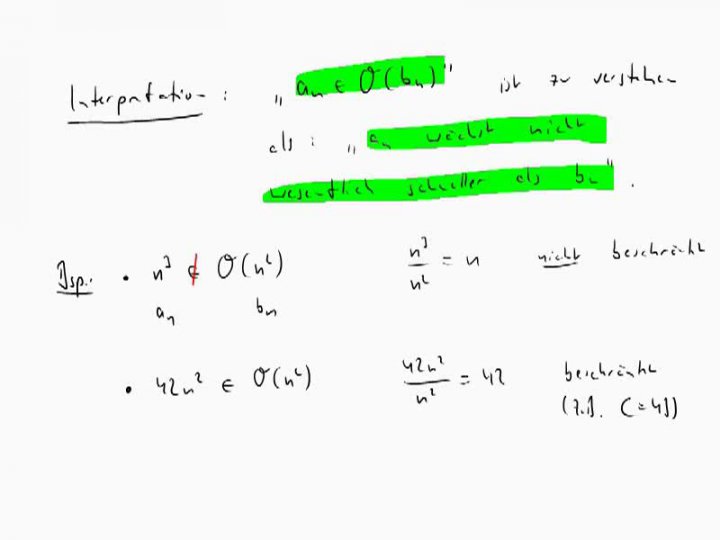 Interpretation: „an ∈ O(bn)" ist zu verstehen
als: „an wächst nicht
wesentlich schneller als bn".
Bsp.: • n³ ∉ O(n²) n³/n² = n nicht beschränkt
an bn
• 42n² ∈ O(n²) 42n²/n² = 42 beschränkt
(z.B. C=43)